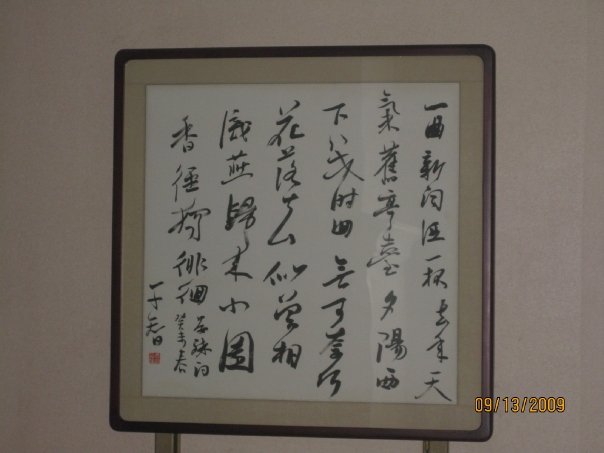 一曲新词酒一杯去年天
氣舊亭臺夕陽西
下幾时回無可奈何
花落去似曾相
識燕歸来小園
香徑獨徘徊
晏殊词
癸未春
09/13/2009